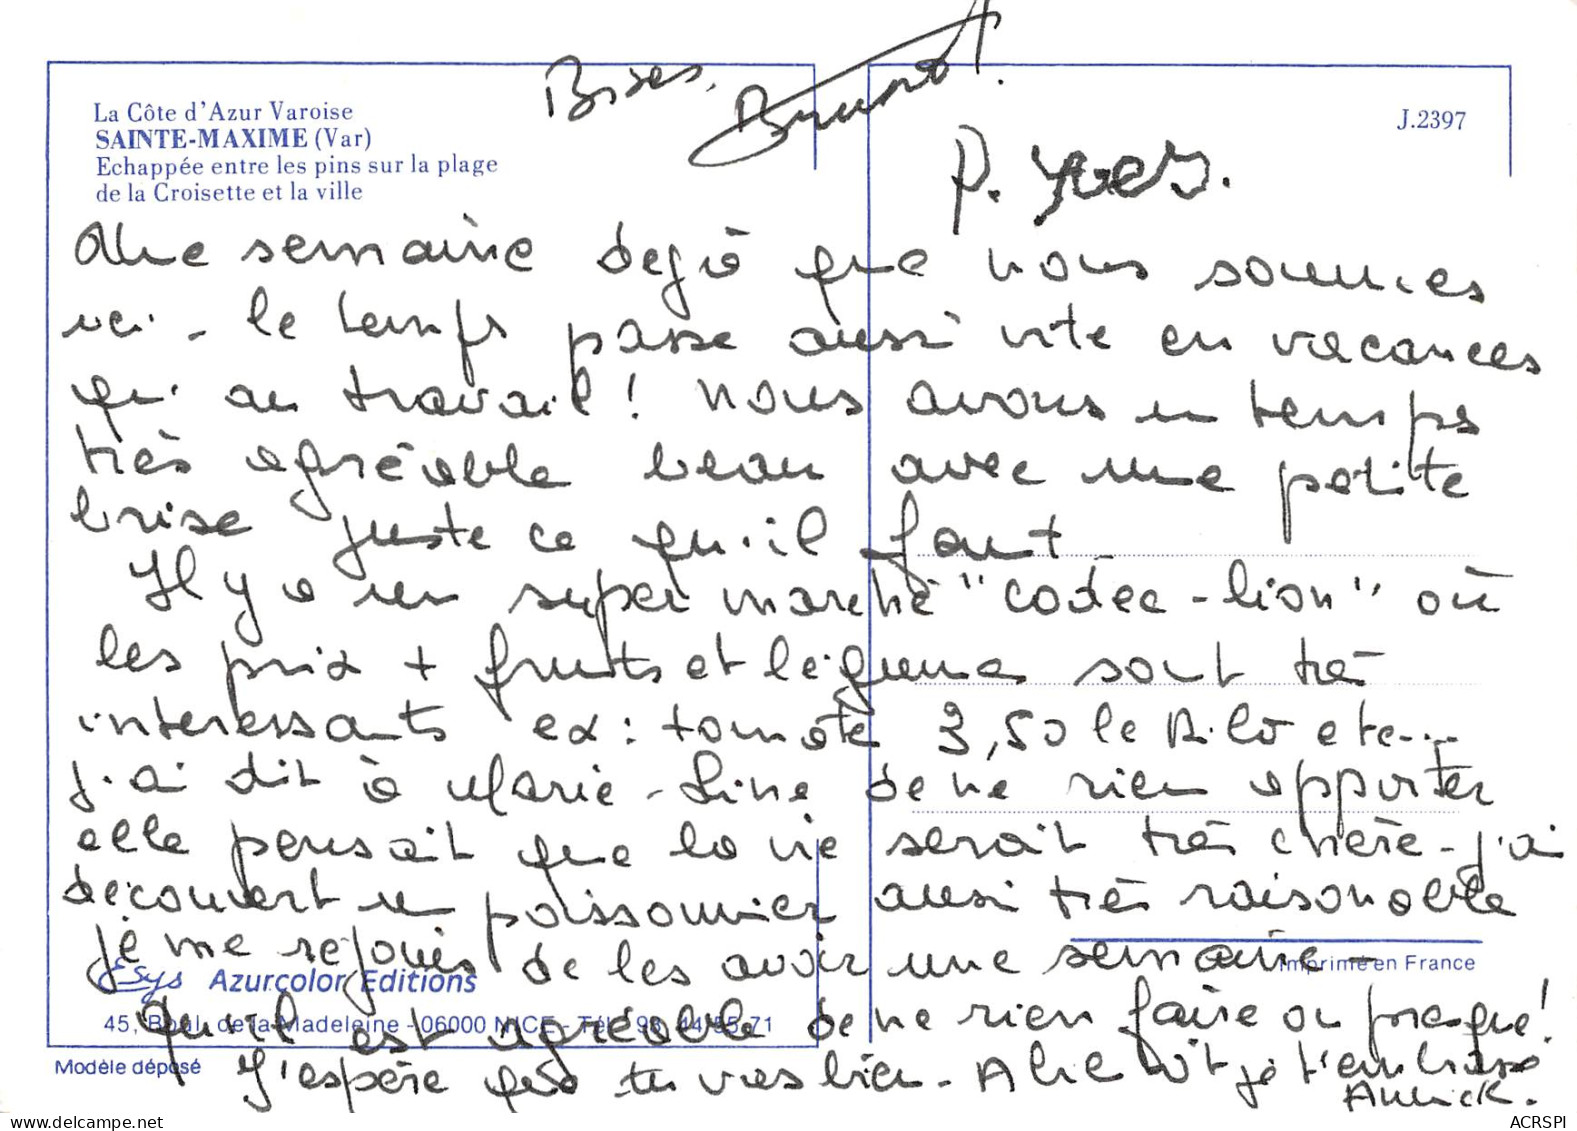 Bises, Bruno
La Côte d'Azur Varoise
SAINTE-MAXIME (Var)
Echappée entre les pins sur la plage
de la Croisette et la ville
J.2397
P. Yves.
Une semaine dejà que nous sommes
ici - le temps passe aussi vite en vacances
qu'au travail ! nous avons un temps
très agréable beau avec une petite
brise juste ce qu'il faut -
Il y a un super marché "codec-lion" où
les prix + fruits et légumes sont très
interessants ex : tomate 3,50 le kilo etc...
j'ai dit à Marie-Line de ne rien apporter
elle pensait que la vie serait très chère - j'ai
découvert un poissonnier aussi très raisonable
je me rejouis de les avoir une semaine -
Qu'il est agréable de ne rien faire ou presque !
J'espère que tu vas bien - A bientôt je t'embrasse
Annick.
Esys Azurcolor Editions
45, Boul. de la Madeleine - 06000 NICE - Tél. 93 44 55 71
Modèle déposé
Imprimé en France
ACRSPI